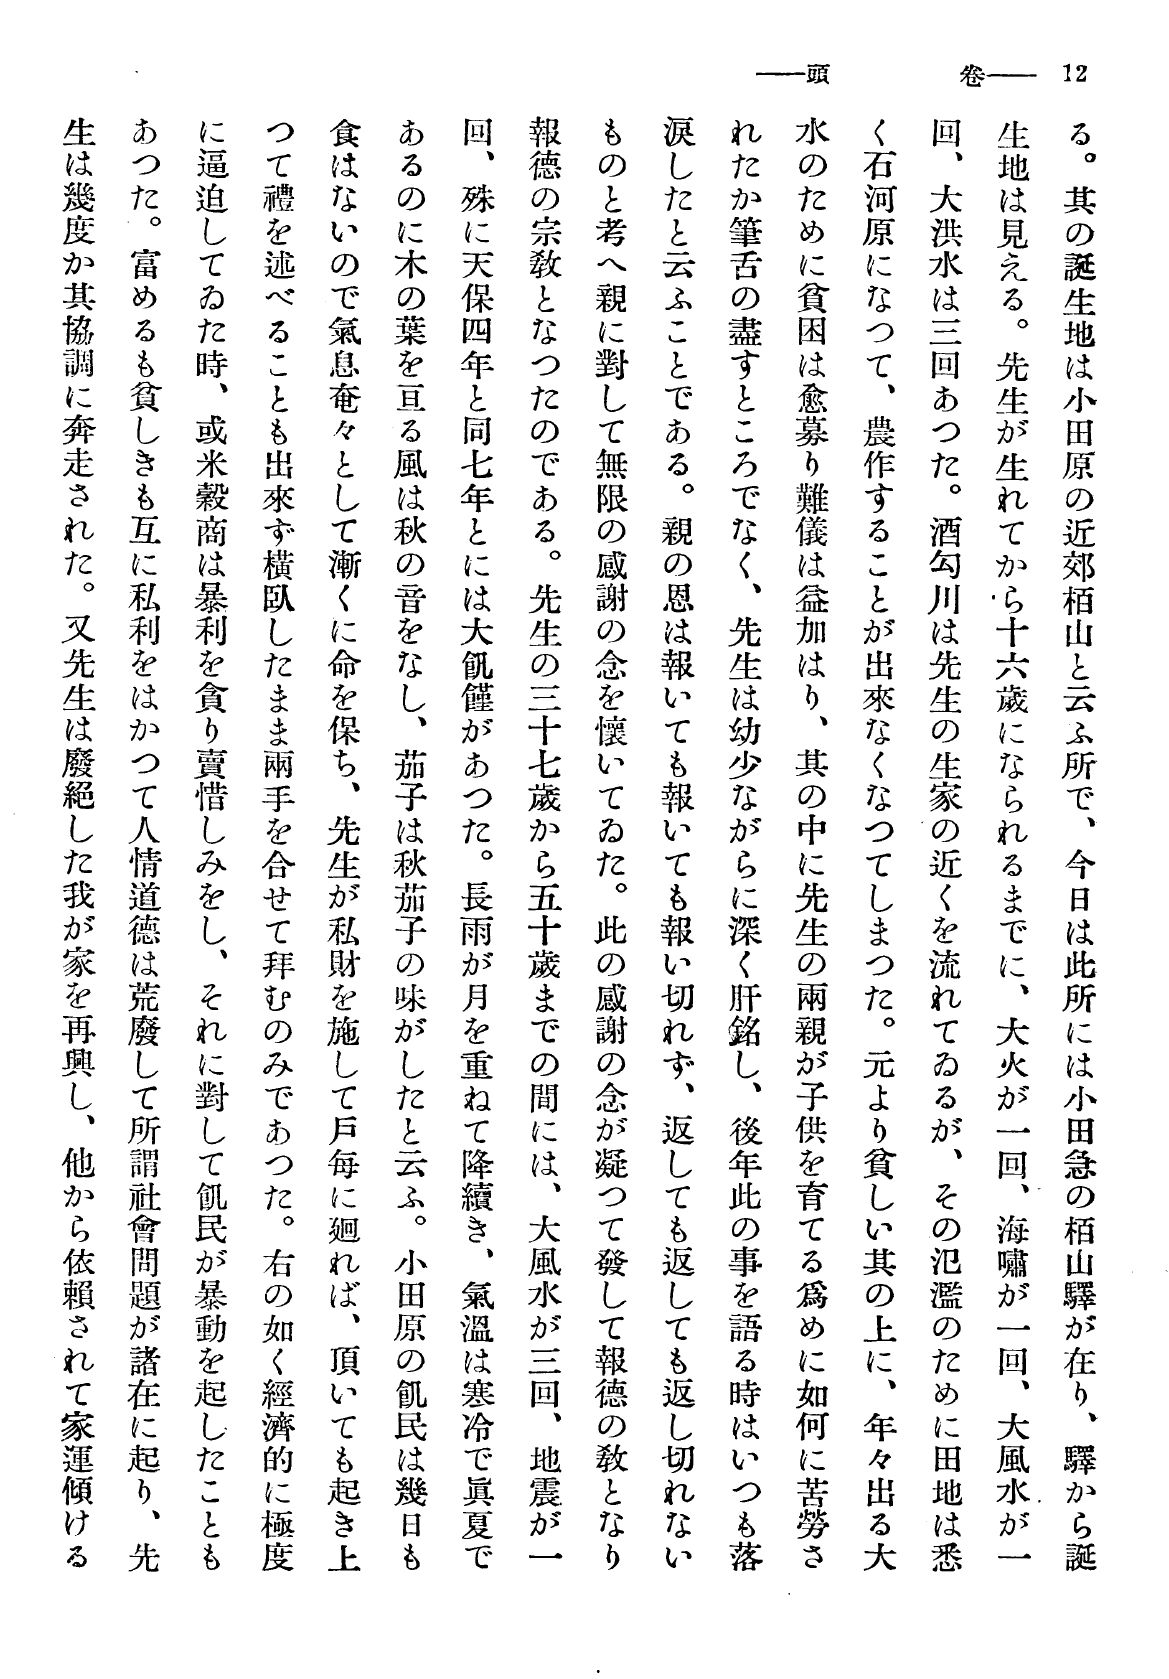 12 ――卷 頭――
る。其の誕生地は小田原の近郊栢山と云ふ所で、今日は此所には小田急の栢山驛が在り、驛から誕
生地は見える。先生が生れてから十六歲になられるまでに、大火が一回、海嘯が一回、大風水が一
回、大洪水は三回あつた。酒勾川は先生の生家の近くを流れてゐるが、その氾濫のために田地は悉
く石河原になつて、農作することが出來なくなつてしまつた。元より貧しい其の上に、年々出る大
水のために貧困は愈募り難儀は益加はり、其の中に先生の兩親が子供を育てる爲めに如何に苦勞さ
れたか筆舌の盡すところでなく、先生は幼少ながらに深く肝銘し、後年此の事を語る時はいつも落
淚したと云ふことである。親の恩は報いても報いても報い切れず、返しても返しても返し切れない
ものと考へ親に對して無限の感謝の念を懷いてゐた。此の感謝の念が凝つて發して報德の敎となり
報德の宗敎となつたのである。先生の三十七歲から五十歲までの間には、大風水が三回、地震が一
回、殊に天保四年と同七年とには大飢饉があつた。長雨が月を重ねて降續き、氣溫は寒冷で眞夏で
あるのに木の葉を亘る風は秋の音をなし、茄子は秋茄子の味がしたと云ふ。小田原の飢民は幾日も
食はないので氣息奄々として漸くに命を保ち、先生が私財を施して戶每に廻れば、頂いても起き上
つて禮を述べることも出來ず橫臥したまま兩手を合せて拜むのみであつた。右の如く經濟的に極度
に逼迫してゐた時、或米穀商は暴利を貪り賣惜しみをし、それに對して飢民が暴動を起したことも
あつた。富めるも貧しきも互に私利をはかつて人情道德は荒廢して所謂社會問題が諸在に起り、先
生は幾度か其協調に奔走された。又先生は廢絕した我が家を再興し、他から依賴されて家運傾ける